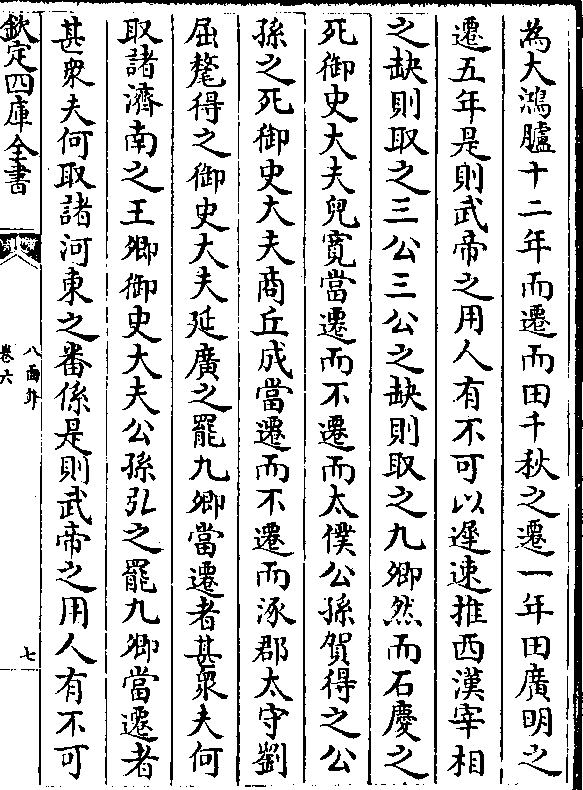 為大鴻臚十二年而遷而田千秋之遷一年田廣明之
遷五年是則武帝之用人有不可以遲速推西漢宰相
之缺則取之三公三公之缺則取之九卿然而石慶之
死御史大夫兒寛當遷而不遷而太僕公孫賀得之公
孫之死御史大夫商丘成當遷而不遷而涿郡太守劉
屈氂得之御史大夫延廣之罷九卿當遷者甚衆夫何
取諸濟南之王卿御史大夫公孫弘之罷九卿當遷者
甚衆夫何取諸河東之番係是則武帝之用人有不可
欽定四庫全書
卷六
八面鋒
七